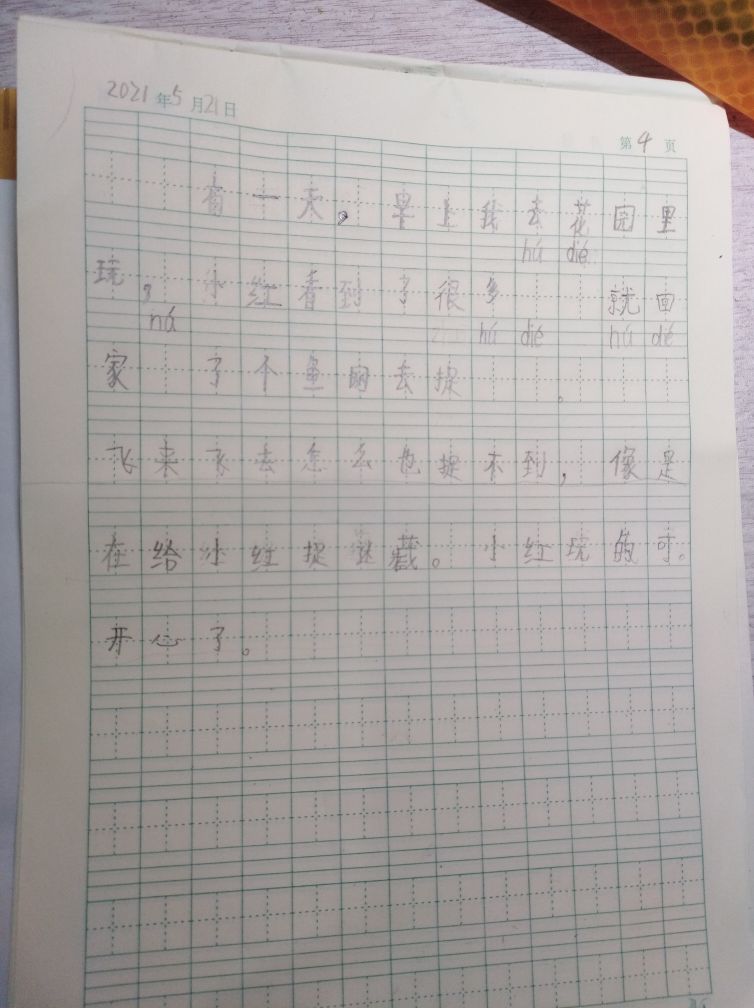 2021年5月21日
第4页
有一天，早上我去花园里
hú dié
玩，小红看到了很多 就回
ná hú dié hú dié
家 了个鱼网去捉 。
飞来飞去怎么也捉不到，像是
在给小红捉迷藏。小红玩的可。
开心了。